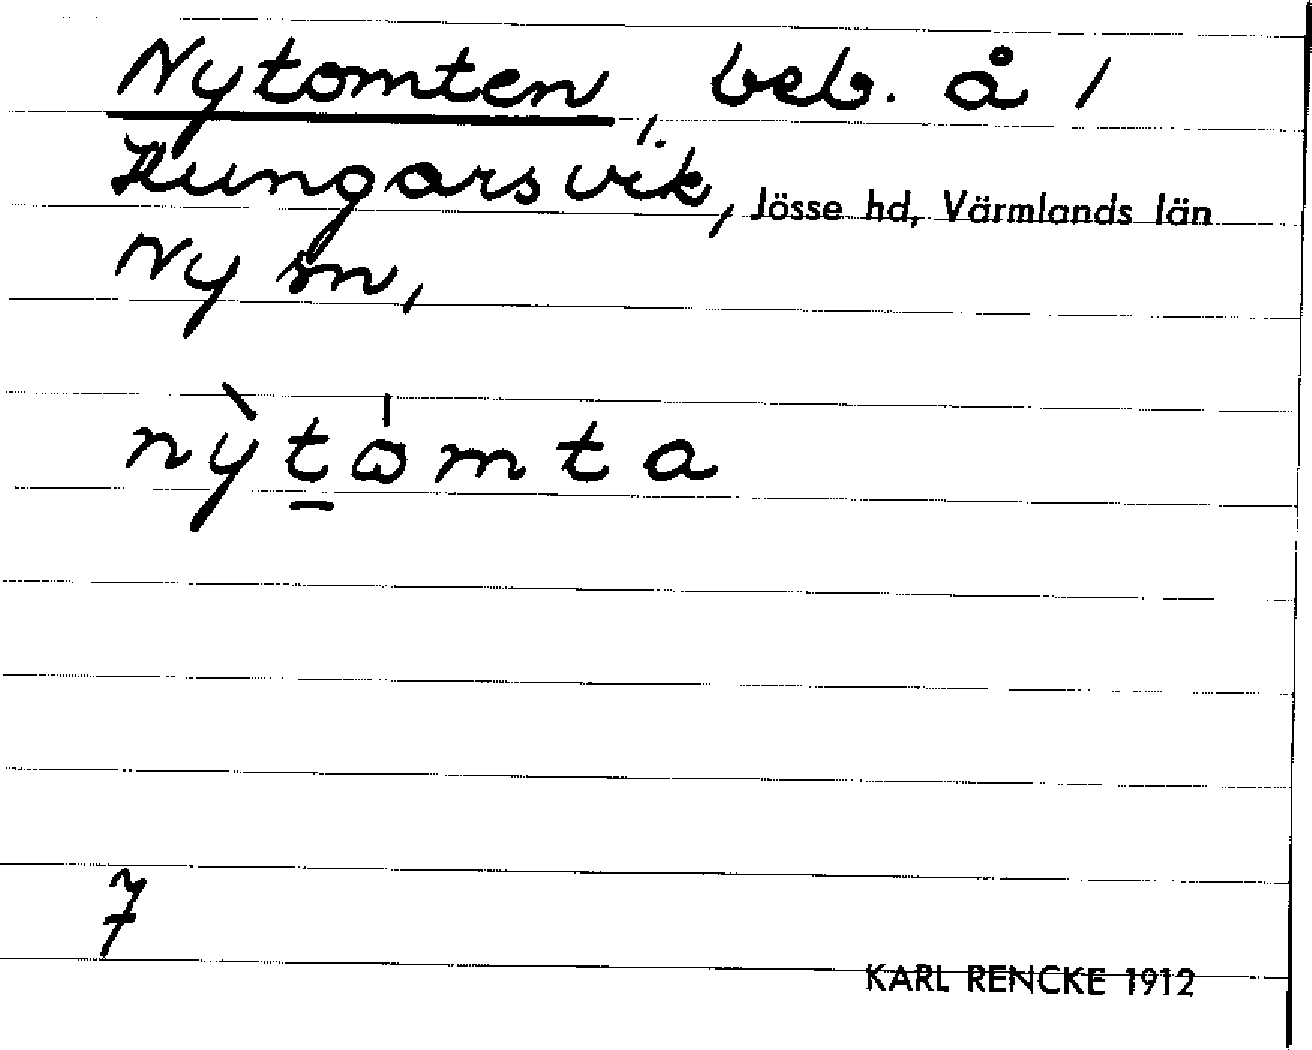 Nytomten, beb. å 1/1.
Kungarsvik, Jösse hd, Värmlands län
Ny sn,
nỳt̠ωmta
7
KARL RENCKE 1912